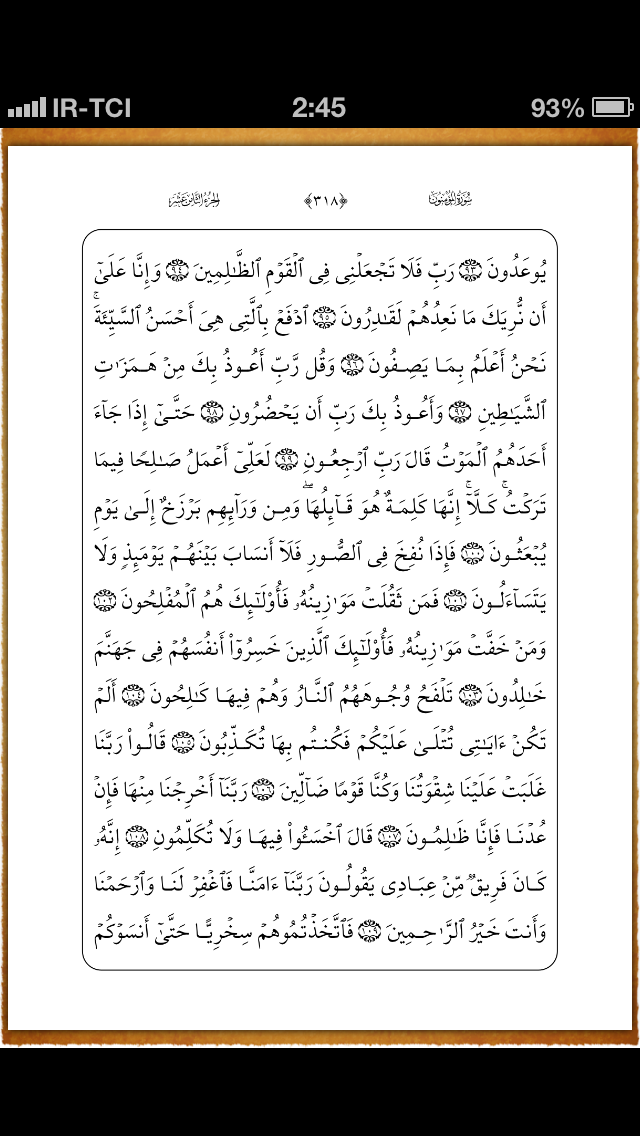 IR-TCI 2:45 93%
سُورَةُ المُؤۡمِنُونَ ﴿٣١٨﴾ الجُزءُ الثَّامِن عَشَر
يُوعَدُونَ ٩٣ رَبِّ فَلَا تَجۡعَلۡنِي فِي ٱلۡقَوۡمِ ٱلظَّٰلِمِينَ ٩٤ وَإِنَّا عَلَىٰٓ
أَن نُّرِيَكَ مَا نَعِدُهُمۡ لَقَٰدِرُونَ ٩٥ ٱدۡفَعۡ بِٱلَّتِي هِيَ أَحۡسَنُ ٱلسَّيِّئَةَۚ
نَحۡنُ أَعۡلَمُ بِمَا يَصِفُونَ ٩٦ وَقُل رَّبِّ أَعُوذُ بِكَ مِنۡ هَمَزَٰتِ
ٱلشَّيَٰطِينِ ٩٧ وَأَعُوذُ بِكَ رَبِّ أَن يَحۡضُرُونِ ٩٨ حَتَّىٰٓ إِذَا جَآءَ
أَحَدَهُمُ ٱلۡمَوۡتُ قَالَ رَبِّ ٱرۡجِعُونِ ٩٩ لَعَلِّيٓ أَعۡمَلُ صَٰلِحٗا فِيمَا
تَرَكۡتُۚ كَلَّآۚ إِنَّهَا كَلِمَةٌ هُوَ قَآئِلُهَاۖ وَمِن وَرَآئِهِم بَرۡزَخٌ إِلَىٰ يَوۡمِ
يُبۡعَثُونَ ١٠٠ فَإِذَا نُفِخَ فِي ٱلصُّورِ فَلَآ أَنسَابَ بَيۡنَهُمۡ يَوۡمَئِذٖ وَلَا
يَتَسَآءَلُونَ ١٠١ فَمَن ثَقُلَتۡ مَوَٰزِينُهُۥ فَأُوْلَٰٓئِكَ هُمُ ٱلۡمُفۡلِحُونَ ١٠٢
وَمَنۡ خَفَّتۡ مَوَٰزِينُهُۥ فَأُوْلَٰٓئِكَ ٱلَّذِينَ خَسِرُوٓاْ أَنفُسَهُمۡ فِي جَهَنَّمَ
خَٰلِدُونَ ١٠٣ تَلۡفَحُ وُجُوهَهُمُ ٱلنَّارُ وَهُمۡ فِيهَا كَٰلِحُونَ ١٠٤ أَلَمۡ
تَكُنۡ ءَايَٰتِي تُتۡلَىٰ عَلَيۡكُمۡ فَكُنتُم بِهَا تُكَذِّبُونَ ١٠٥ قَالُواْ رَبَّنَا
غَلَبَتۡ عَلَيۡنَا شِقۡوَتُنَا وَكُنَّا قَوۡمٗا ضَآلِّينَ ١٠٦ رَبَّنَآ أَخۡرِجۡنَا مِنۡهَا فَإِنۡ
عُدۡنَا فَإِنَّا ظَٰلِمُونَ ١٠٧ قَالَ ٱخۡسَـُٔواْ فِيهَا وَلَا تُكَلِّمُونِ ١٠٨ إِنَّهُۥ
كَانَ فَرِيقٞ مِّنۡ عِبَادِي يَقُولُونَ رَبَّنَآ ءَامَنَّا فَٱغۡفِرۡ لَنَا وَٱرۡحَمۡنَا
وَأَنتَ خَيۡرُ ٱلرَّٰحِمِينَ ١٠٩ فَٱتَّخَذۡتُمُوهُمۡ سِخۡرِيًّا حَتَّىٰٓ أَنسَوۡكُمۡ